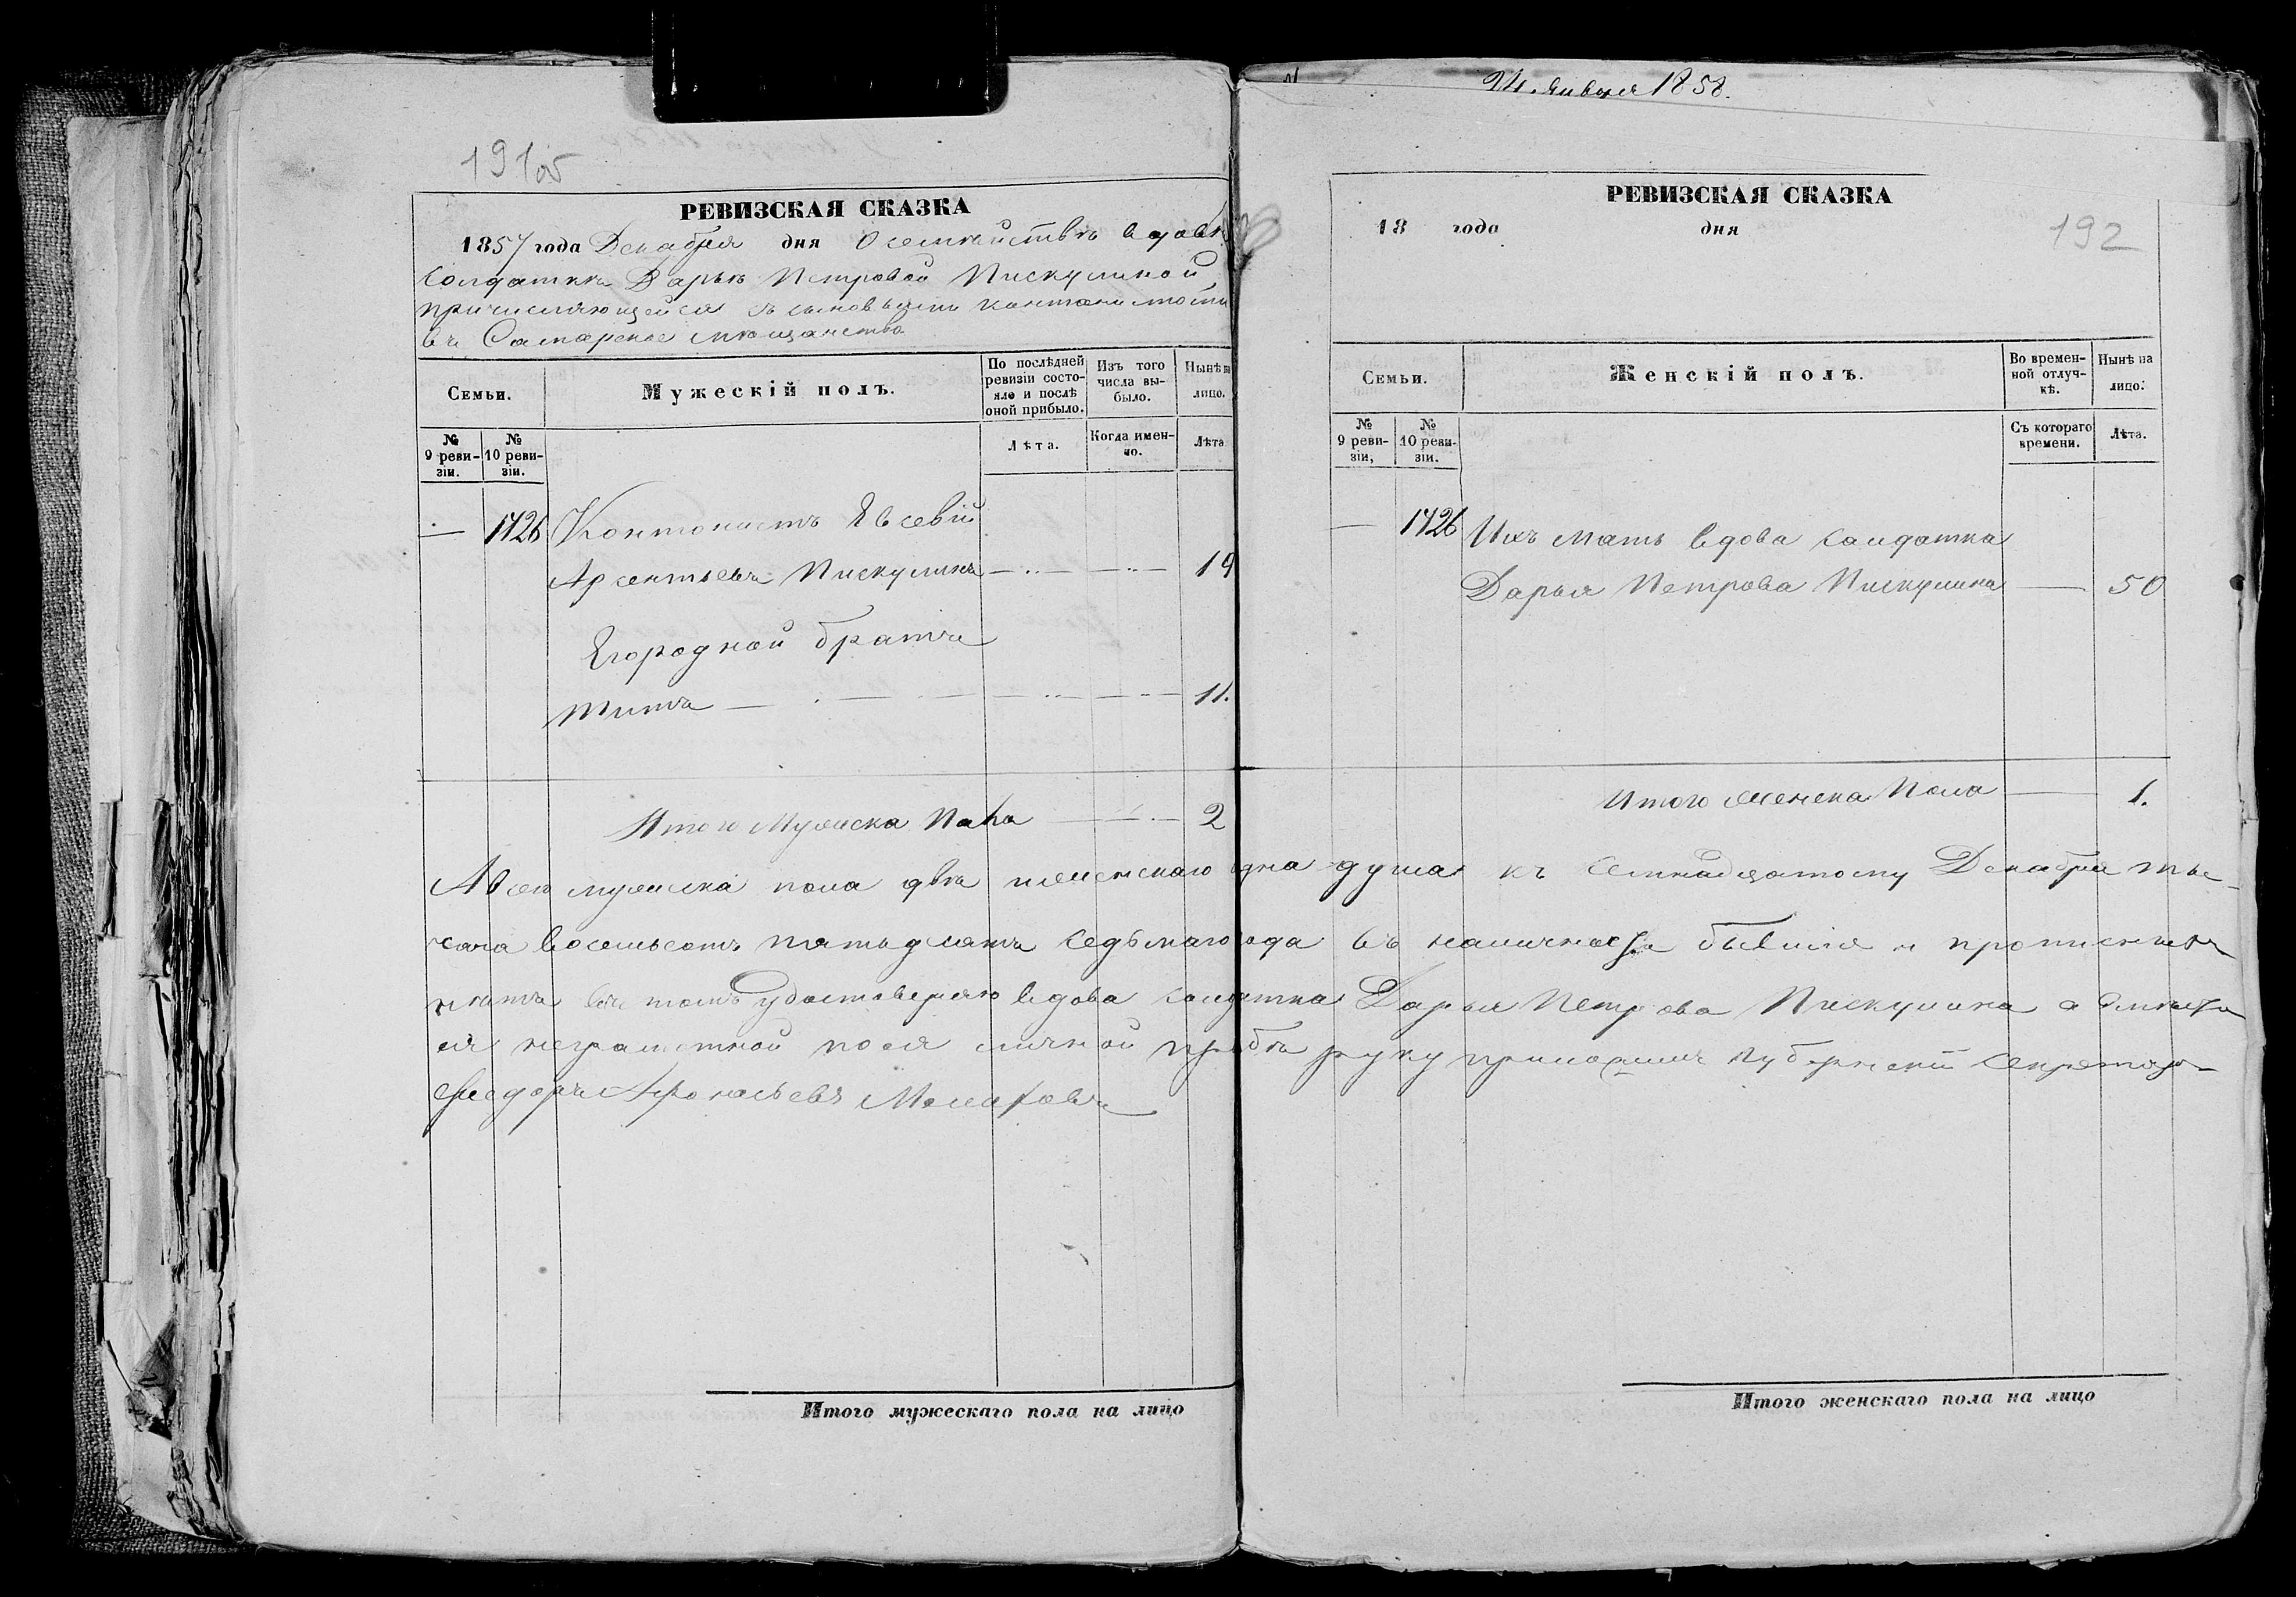 191об
РЕВИЗСКАЯ СКАЗКА
1857 года Декабря дня О семѣйствѣ вдовѣ
солдаткѣ Дарьѣ Петровой Пискулиной
причисляющейся съ сыновьями кантонистами
въ Самарское мѣщанство
Семьи.
Мужескій полъ.
По послѣдней ревизіи состояло и послѣ оной прибыло.
Изъ того числа выбыло.
Нынѣ на лицо.
№ 9 ревизіи.
№ 10 ревизіи.
Лѣта.
Когда именно.
Лѣта
— 1726 Контонистъ Евсевій
Арсентьевъ Пискулинъ — 19
Егородной братъ
Титъ — 11.
Итого Мужеска Пола — 2
24. Января 1858.
РЕВИЗСКАЯ СКАЗКА
192
18 года дня
Семьи.
Женскій полъ.
Во временной отлучкѣ.
Нынѣ на лицо.
№ 9 ревизіи,
№ 10 ревизіи.
Съ котораго времени.
Лѣта.
— 1726 Ихъ мать вдова солдатка
Дарья Петрова Пискулина — 50
Итого женска Пола — 1.
А всего мужеска пола двѣ и женскаго одна душа къ семнадцатому Декабря ты-
сяча восемьсотъ пятьдесятъ седьмаго года въ наличности бывшія и прописныхъ
нѣтъ въ томъ удостоверяю вдова солдатка Дарья Петрова Пискулина а вмѣсто
ея неграмотной по ея личной прозьбѣ руку приложилъ Губернскій Секретарь
Федоръ Афонасьевъ
Итого мужескаго пола на лицо
Итого женскаго пола на лицо